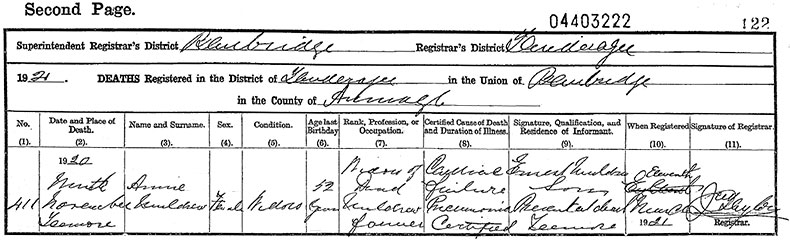 Second Page.
04403222 122
Superintendent Registrar's District Banbridge Registrar's District Tanderagee
1921. DEATHS Registered in the District of Tanderagee in the Union of Banbridge
in the County of Armagh
No. Date and Place of Death. Name and Surname. Sex. Condition. Age last Birthday Rank, Profession, or Occupation. Certified Cause of Death and Duration of Illness. Signature, Qualification, and Residence of Informant. When Registered Signature of Registrar.
(1). (2). (3). (4). (5). (6). (7). (8). (9). (10). (11).
1920
Ninth Annie 52 Widow of Cardiac Ernest Muldrew Eleventh
411 November Muldrew Widow years David Muldrew Failure Son March
Teemore farmer Pneumonia Present at death 1921
Certified Teemore Registrar.